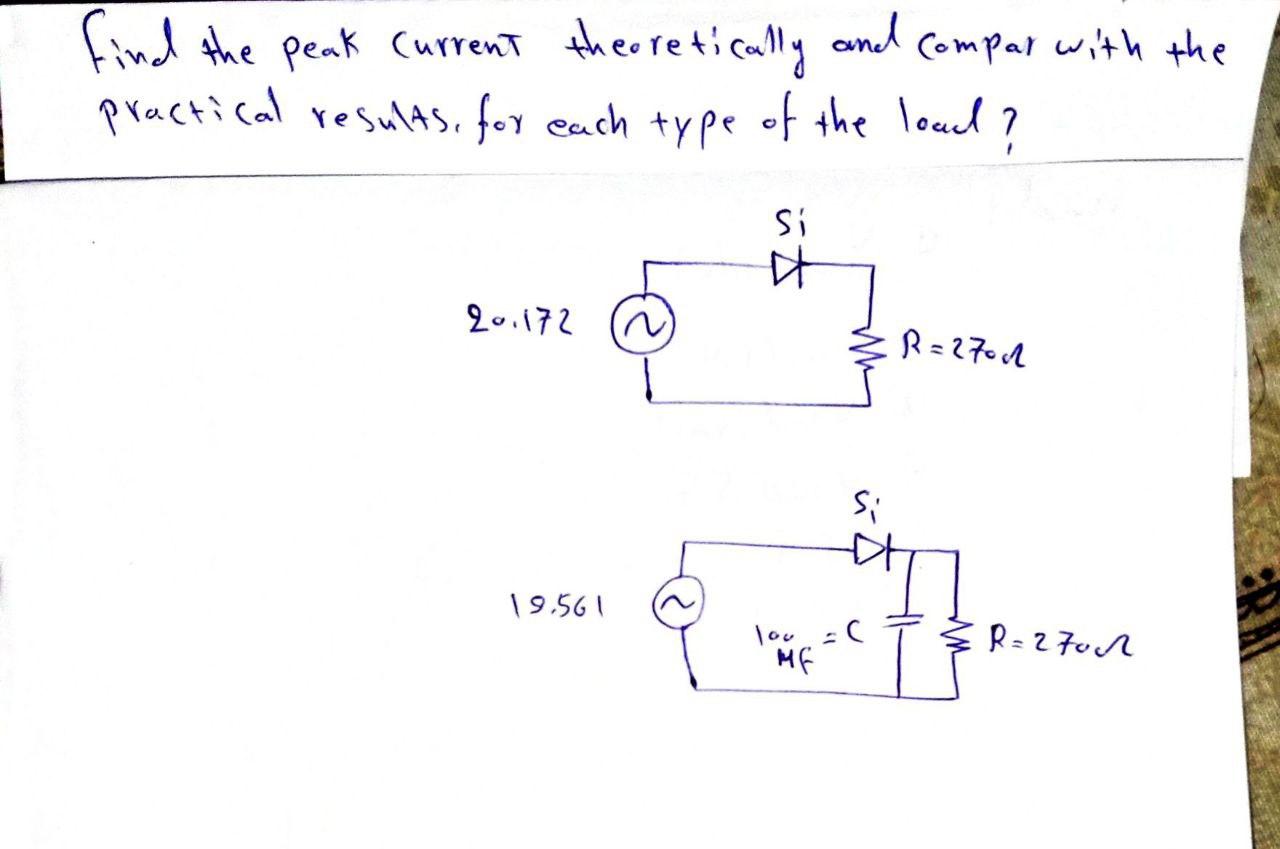 Find the peak current theoretically and compar with the
practical results, for each type of the load ?
Si
20.172
R=270Ω
Si
19.561
100 = C
MF
R=270Ω